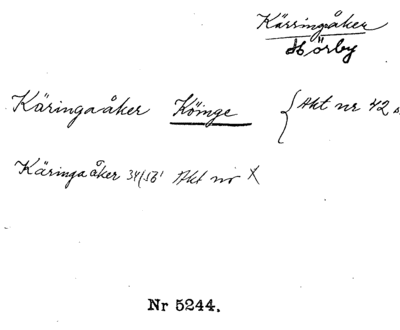 Kärringåker
Hörby
Käringaåker Köinge { Akt nr 42
Käringaåker 34/56 Akt nr X
Nr 5244.